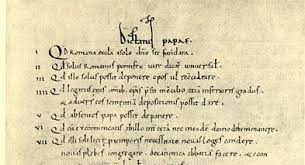 Dictatus papae.
I Qđ Romana eccła a solo dño sit fundata.
II Qđ solus Romanus pontifex iure dicat universał.
III Qđ ille solus possit deponere ep̄os uł reciliare.
IIII Qđ legatus eius omib; ep̄is p̄sit in cōcilio etiā inferioris gradus
& adversus eos sententiā depositionis possit dare.
V Qđ absentes papa possit deponere.
VI Qđ cū excōmunicatis ab illo int̄ cetera nec in eadē domo manere.
VII Qđ illi soli licet p̄ temporis necessitate novas leges condere
novas plebes congregare. de canonica abbatiā facere.